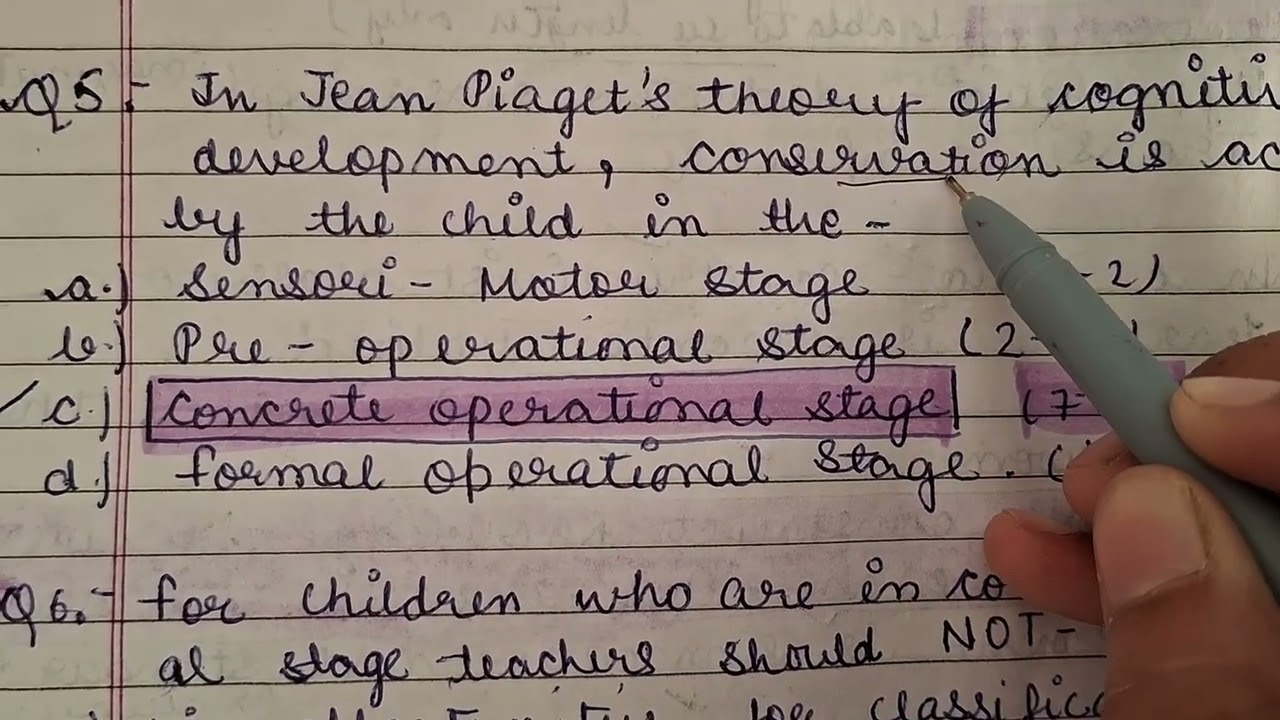 Q5:- In Jean Piaget's theory of cogniti
development, conservation is ac
by the child in the -
a.) Sensori - Motor stage -2)
b.) Pre - operational stage (2-
c.) Concrete operational stage (7-
d.) formal operational stage. (
Q6.- for children who are in co
al stage teachers should NOT-
for classific